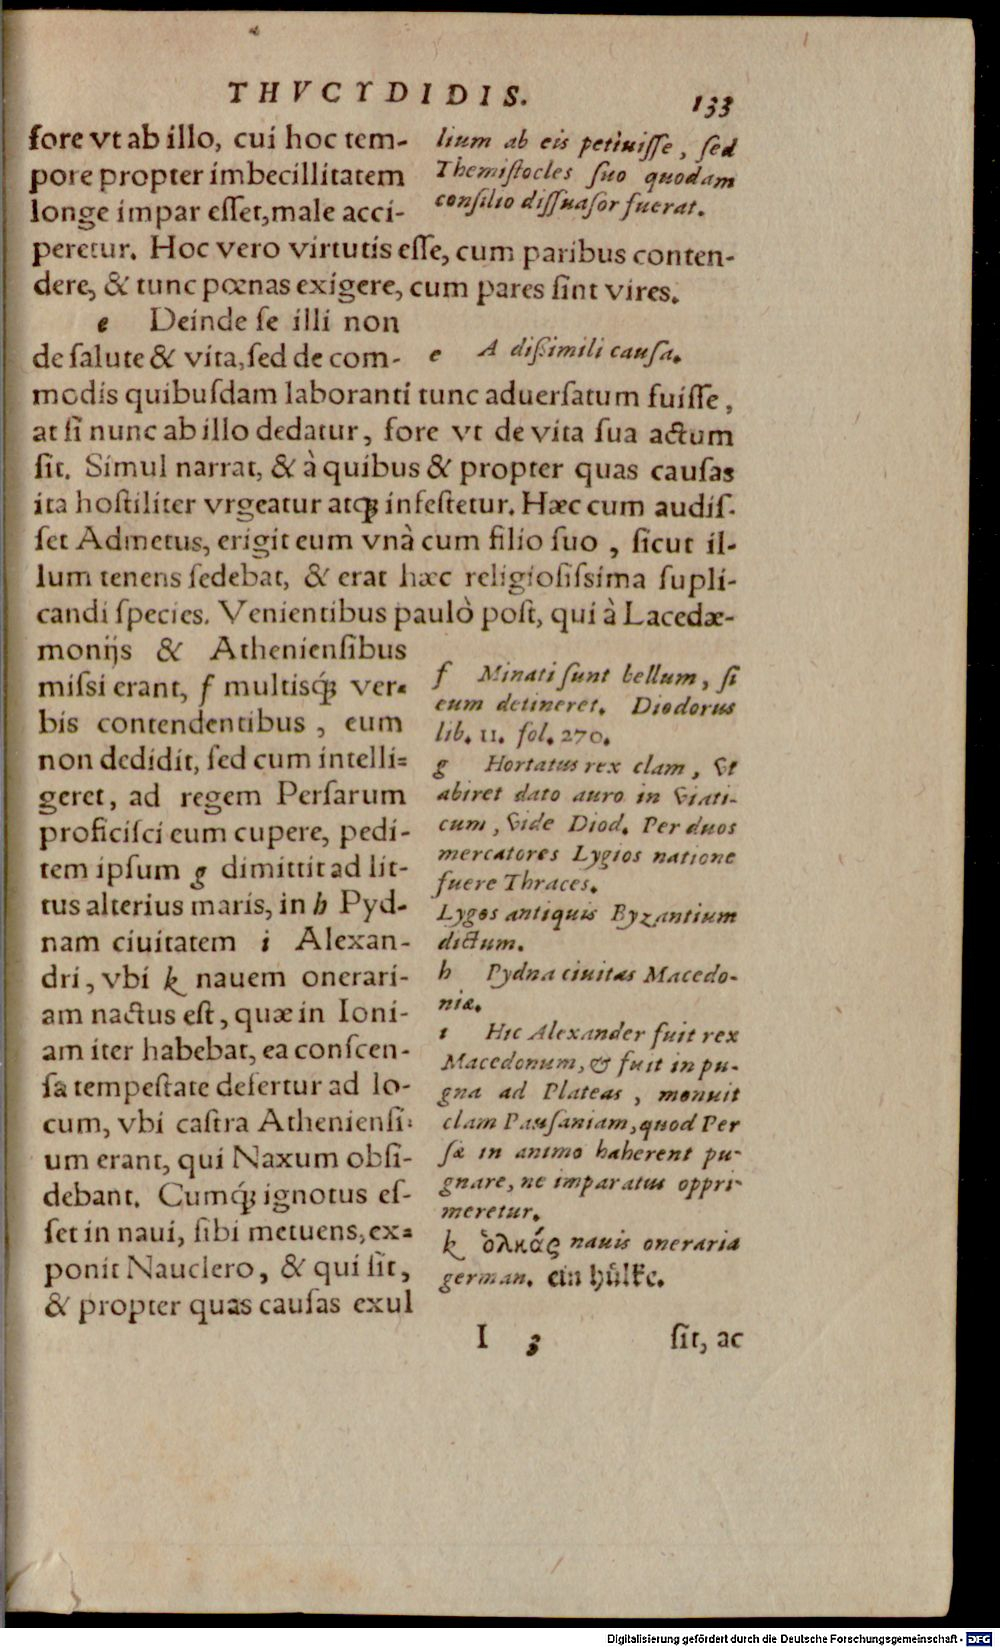 THVCYDIDIS. 133
fore vt ab illo, cui hoc tem-
pore propter imbecillitatem
longe impar esset, male acci-
peretur. Hoc vero virtutis esse, cum paribus conten-
dere, & tunc pœnas exigere, cum pares sint vires.
e Deinde se illi non
de salute & vita, sed de com-
modis quibusdam laboranti tunc aduersatum fuisse,
at si nunc ab illo dedatur, fore vt de vita sua actum
sit. Simul narrat, & à quibus & propter quas causas
ita hostiliter vrgeatur atq; infestetur. Hæc cum audis-
set Admetus, erigit eum vnà cum filio suo, sicut il-
lum tenens sedebat, & erat hæc religiosissima supli-
candi species. Venientibus paulò post, qui à Lacedæ-
monijs & Atheniensibus
missi erant, f multisq́; ver-
bis contendentibus, eum
non dedidit, sed cum intelli-
geret, ad regem Persarum
proficisci eum cupere, pedi-
tem ipsum g dimittit ad lit-
tus alterius maris, in h Pyd-
nam ciuitatem i Alexan-
dri, vbi k nauem onerari-
am nactus est, quæ in Ioni-
am iter habebat, ea conscen-
sa tempestate defertur ad lo-
cum, vbi castra Atheniensi-
um erant, qui Naxum obsi-
debant. Cumq́; ignotus es-
set in naui, sibi metuens, ex-
ponit Nauclero, & qui sit,
& propter quas causas exul
lium ab eis petiuisse, sed
Themistocles suo quodam
consilio dissuasor fuerat.
e A dissimili causa.
f Minati sunt bellum, si
eum detineret. Diodorus
lib. 11. fol. 270.
g Hortatus rex clam, vt
abiret dato auro in viati-
cum, vide Diod. Per duos
mercatores Lygios natione
fuere Thraces.
Lygos antiquis Byzantium
dictum.
h Pydna ciuitas Macedo-
niæ.
i Hic Alexander fuit rex
Macedonum, & fuit in pu-
gna ad Plateas, monuit
clam Pausaniam, quod Per
sæ in animo haberent pu-
gnare, ne imparatus oppri-
meretur.
k ὁλκάς nauis oneraria
german. ein hůlke.
I 3 sit, ac
Digitalisierung gefördert durch die Deutsche Forschungsgemeinschaft - DFG